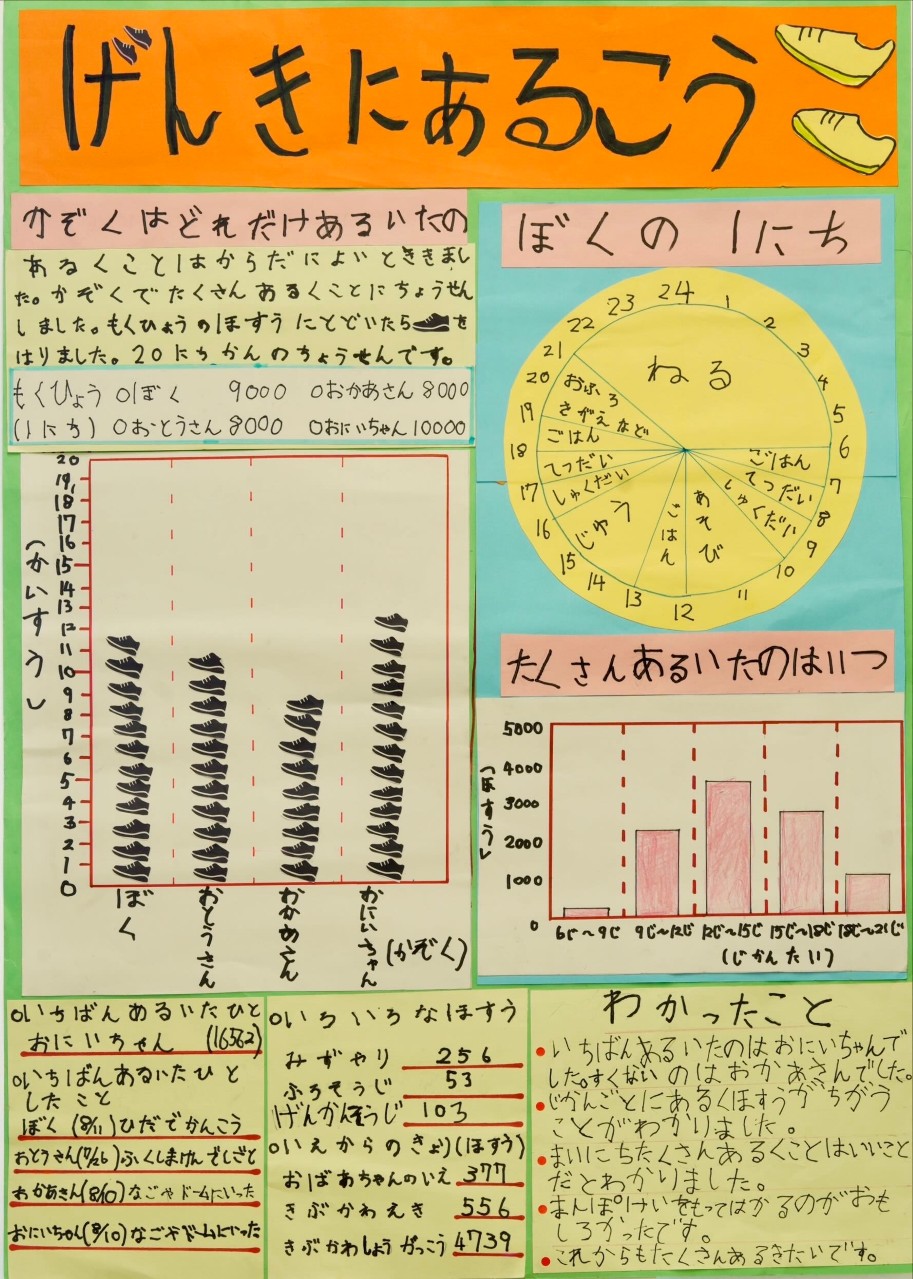 げんきにあるこう
かぞくはどれだけあるいたの
あるくことはからだによいとききまし
た。かぞくでたくさんあるくことにちょうせん
しました。もくひょうのほすうにとどいたら を
はりました。20にちかんのちょうせんです。
もくひょう ○ぼく 9000 ○おかあさん 8000
(1にち) ○おとうさん 8000 ○おにいちゃん 10000
(かいすう)
20
19
18
17
16
15
14
13
12
11
10
9
8
7
6
5
4
3
2
1
0
ぼく
おとうさん
おかあさん
おにいちゃん
(かぞく)
ぼくの1にち
24
1
2
3
4
5
6
7
8
9
10
11
12
13
14
15
16
17
18
19
20
21
22
23
ねる
ごはん
てつだい
しゅくだい
あそび
ごはん
じゆう
しゅくだい
てつだい
ごはん
おふろ
さがえなど
たくさんあるいたのはいつ
(ほすう)
5000
4000
3000
2000
1000
0
6じ～9じ
9じ～12じ
12じ～15じ
15じ～18じ
18じ～21じ
(じかんたい)
○いちばんあるいたひと
おにいちゃん (16562)
○いちばんあるいたひと
したこと
ぼく (8/11) ひだでかんこう
おとうさん(7/26) ふくしまけんでしごと
おかあさん(8/10) なごやドームにいった
おにいちゃん(8/10) なごやドームにいった
○いろいろなほすう
みずやり 256
ふろそうじ 53
げんかんそうじ 103
○いえからのきょり(ほすう)
おばあちゃんのいえ 377
きぶかわえき 556
きぶかわしょうがっこう 4739
わかったこと
●いちばんあるいたのはおにいちゃんで
した。すくないのはおかあさんでした。
●じかんごとにあるくほすうがちがう
ことがわかりました。
●まいにちたくさんあるくことはいいこと
だとわかりました。
●まんぽけいをもってはかるのがおも
しろかったです。
●これからもたくさんあるきたいです。